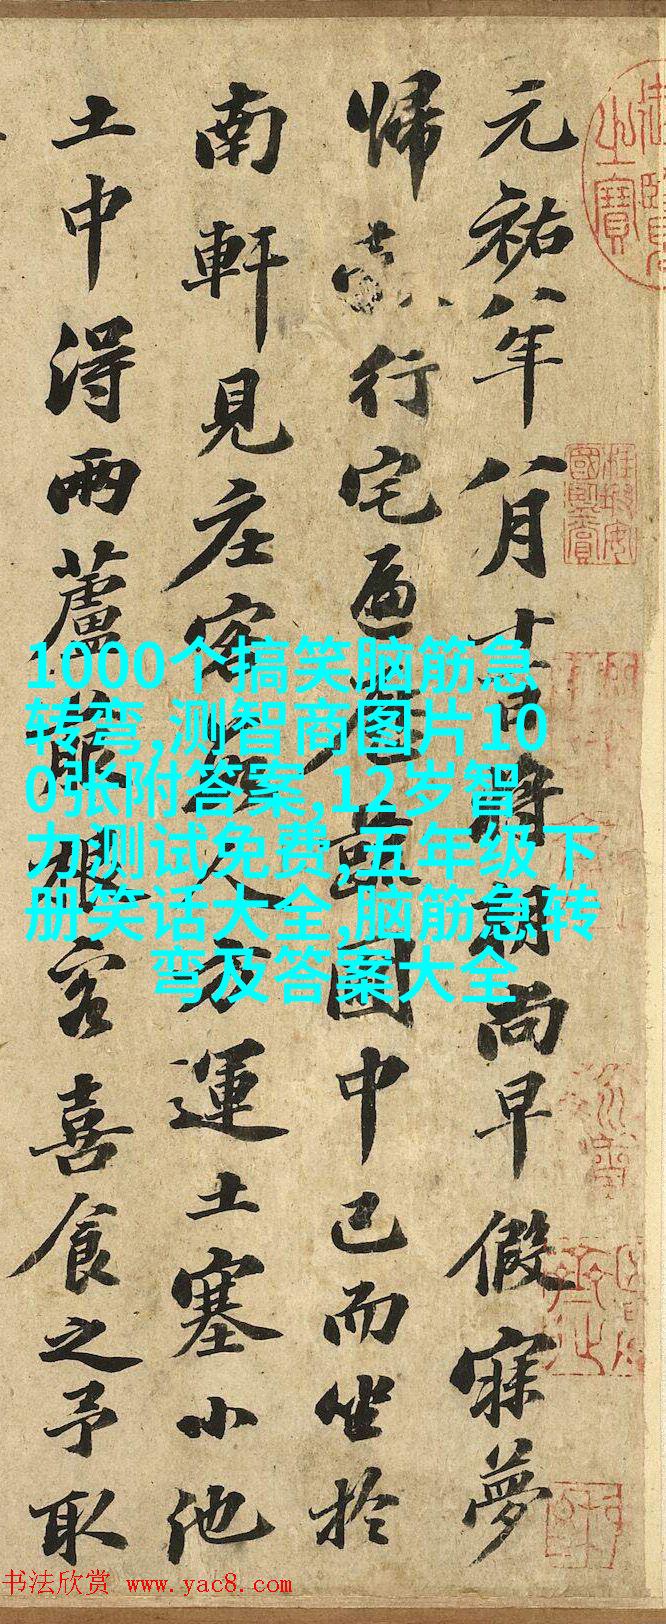 元祐八年八月十一日將朝尚早假寐夢
歸行宅遍歷蔬園中已而坐於
南軒見庄客數人方運土塞小池
土中得兩蘆菔根客喜食之予取
1000个搞笑脑筋急
转弯,测智商图片10
0张附答案,12岁智
力测试免费,五年级下
册笑话大全,脑筋急转
弯及答案大全
书法欣赏 www.yac8.com